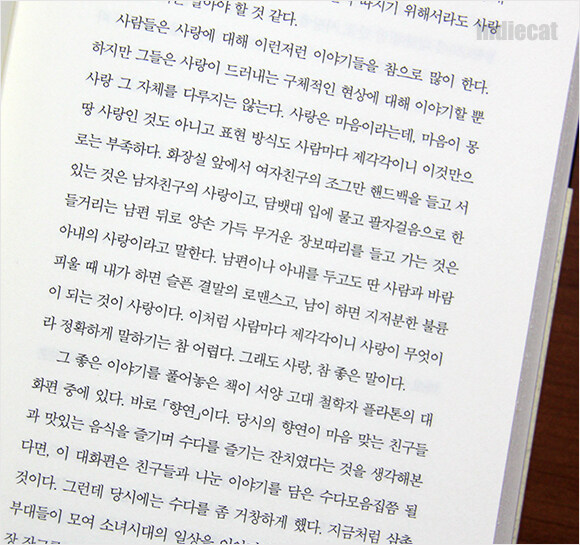 indiecat
는 알아야 할 것 같다.
따지기 위해서라도 사랑
사람들은 사랑에 대해 이런저런 이야기들을 참으로 많이 한다.
하지만 그들은 사랑이 드러내는 구체적인 현상에 대해 이야기할 뿐
사랑 그 자체를 다루지는 않는다. 사랑은 마음이라는데, 마음이 몽
땅 사랑인 것도 아니고 표현 방식도 사람마다 제각각이니 이것만으
로는 부족하다. 화장실 앞에서 여자친구의 조그만 핸드백을 들고 서
있는 것은 남자친구의 사랑이고, 담뱃대 입에 물고 팔자걸음으로 한
들거리는 남편 뒤로 양손 가득 무거운 장보따리를 들고 가는 것은
아내의 사랑이라고 말한다. 남편이나 아내를 두고도 딴 사람과 바람
피울 때 내가 하면 슬픈 결말의 로맨스고, 남이 하면 지저분한 불륜
이 되는 것이 사랑이다. 이처럼 사람마다 제각각이니 사랑이 무엇이
라 정확하게 말하기는 참 어렵다. 그래도 사랑, 참 좋은 말이다.
그 좋은 이야기를 풀어놓은 책이 서양 고대 철학자 플라톤의 대
화편 중에 있다. 바로 「향연」이다. 당시의 향연이 마음 맞는 친구들
과 맛있는 음식을 즐기며 수다를 즐기는 잔치였다는 것을 생각해본
다면, 이 대화편은 친구들과 나눈 이야기를 담은 수다모음집쯤 될
것이다. 그런데 당시에는 수다를 좀 거창하게 했다. 지금처럼 삼촌
부대들이 모여 소녀시대의 일상을